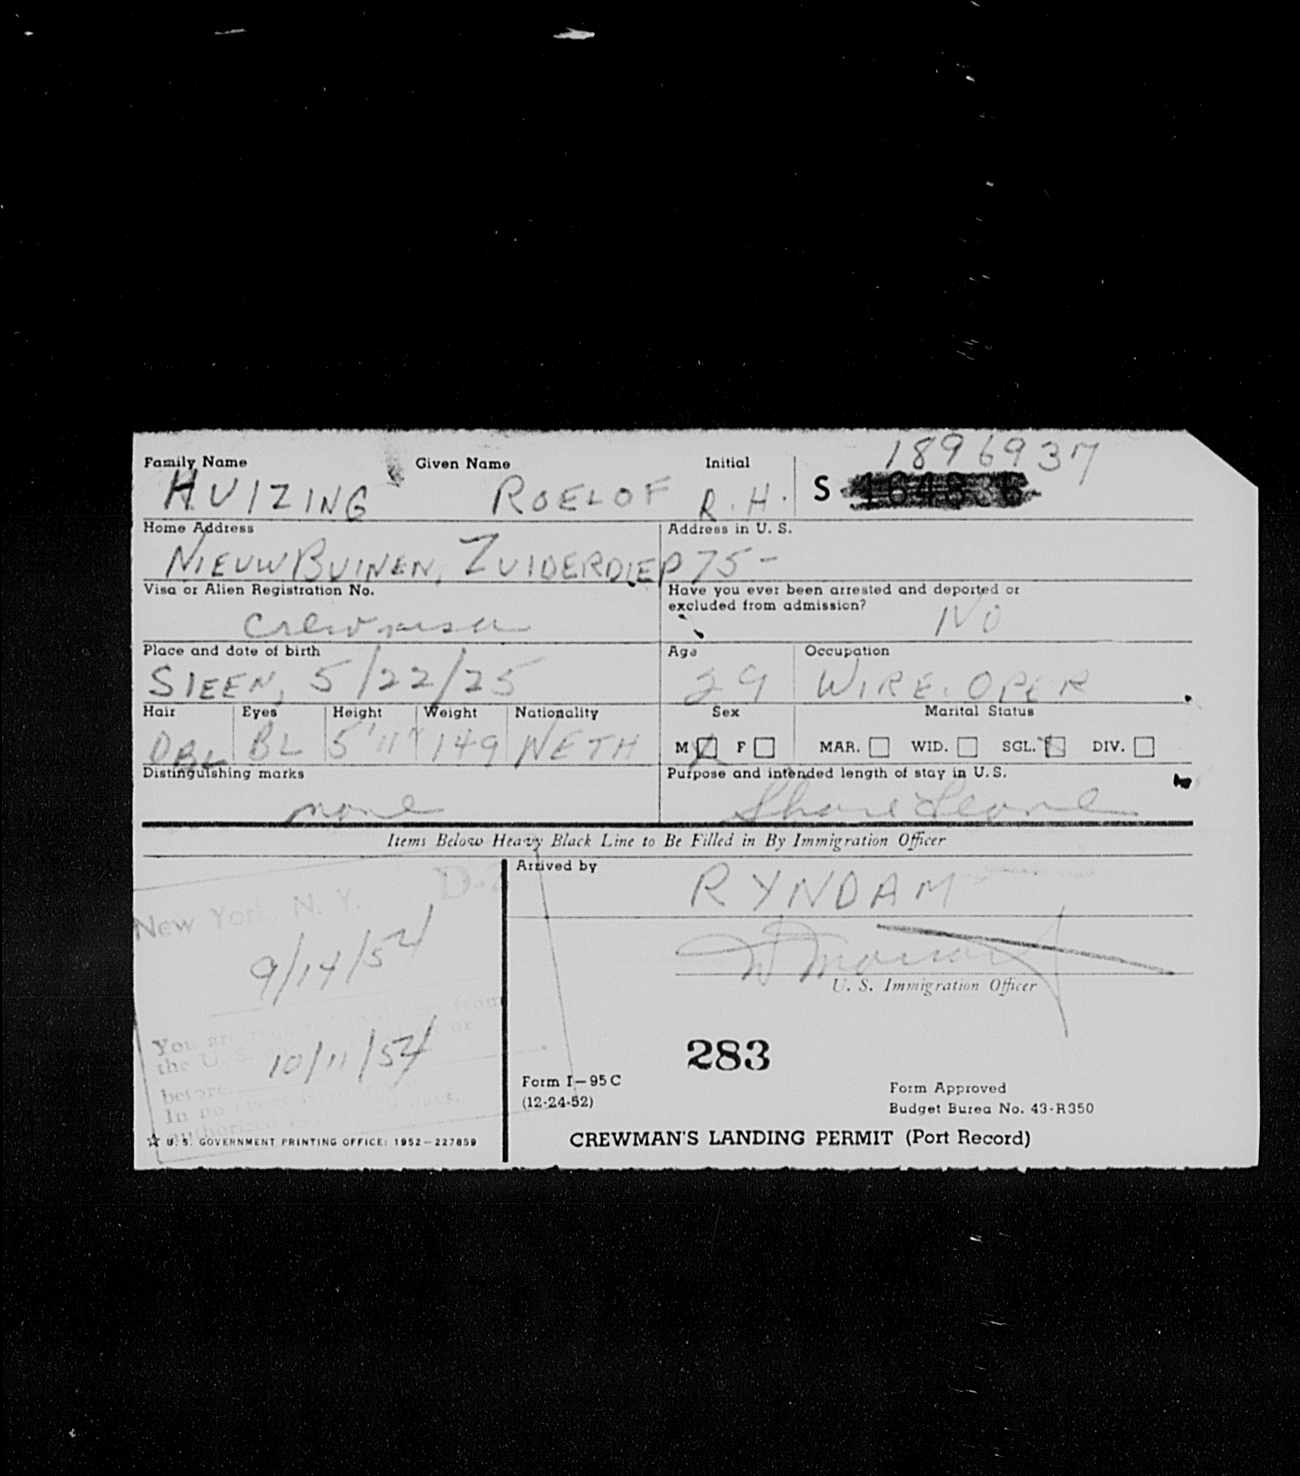 1896937
Family Name Given Name Initial
HUIZING ROELOF R.H. S
Home Address Address in U. S.
NIEUW BUINEN, ZUIDERDIEP 75-
Visa or Alien Registration No. Have you ever been arrested and deported or
excluded from admission? NO
crew visa
Place and date of birth Age Occupation
SLEEN, 5/22/25 29 WIRE. OPER
Hair Eyes Height Weight Nationality Sex Marital Status
DBL BL 5'11" 149 NETH M F MAR. WID. SGL. DIV.
Distinguishing marks Purpose and intended length of stay in U. S.
none Shore Leave
Items Below Heavy Black Line to Be Filled in By Immigration Officer
Arrived by
RYNDAM
New York, N. Y.
9/14/54
U. S. Immigration Officer
You are
the U. S.
10/11/54
283
before
In no
Form I-95 C
(12-24-52)
Form Approved
Budget Burea No. 43-R350
☆ U. S. GOVERNMENT PRINTING OFFICE: 1952-227859
CREWMAN'S LANDING PERMIT (Port Record)